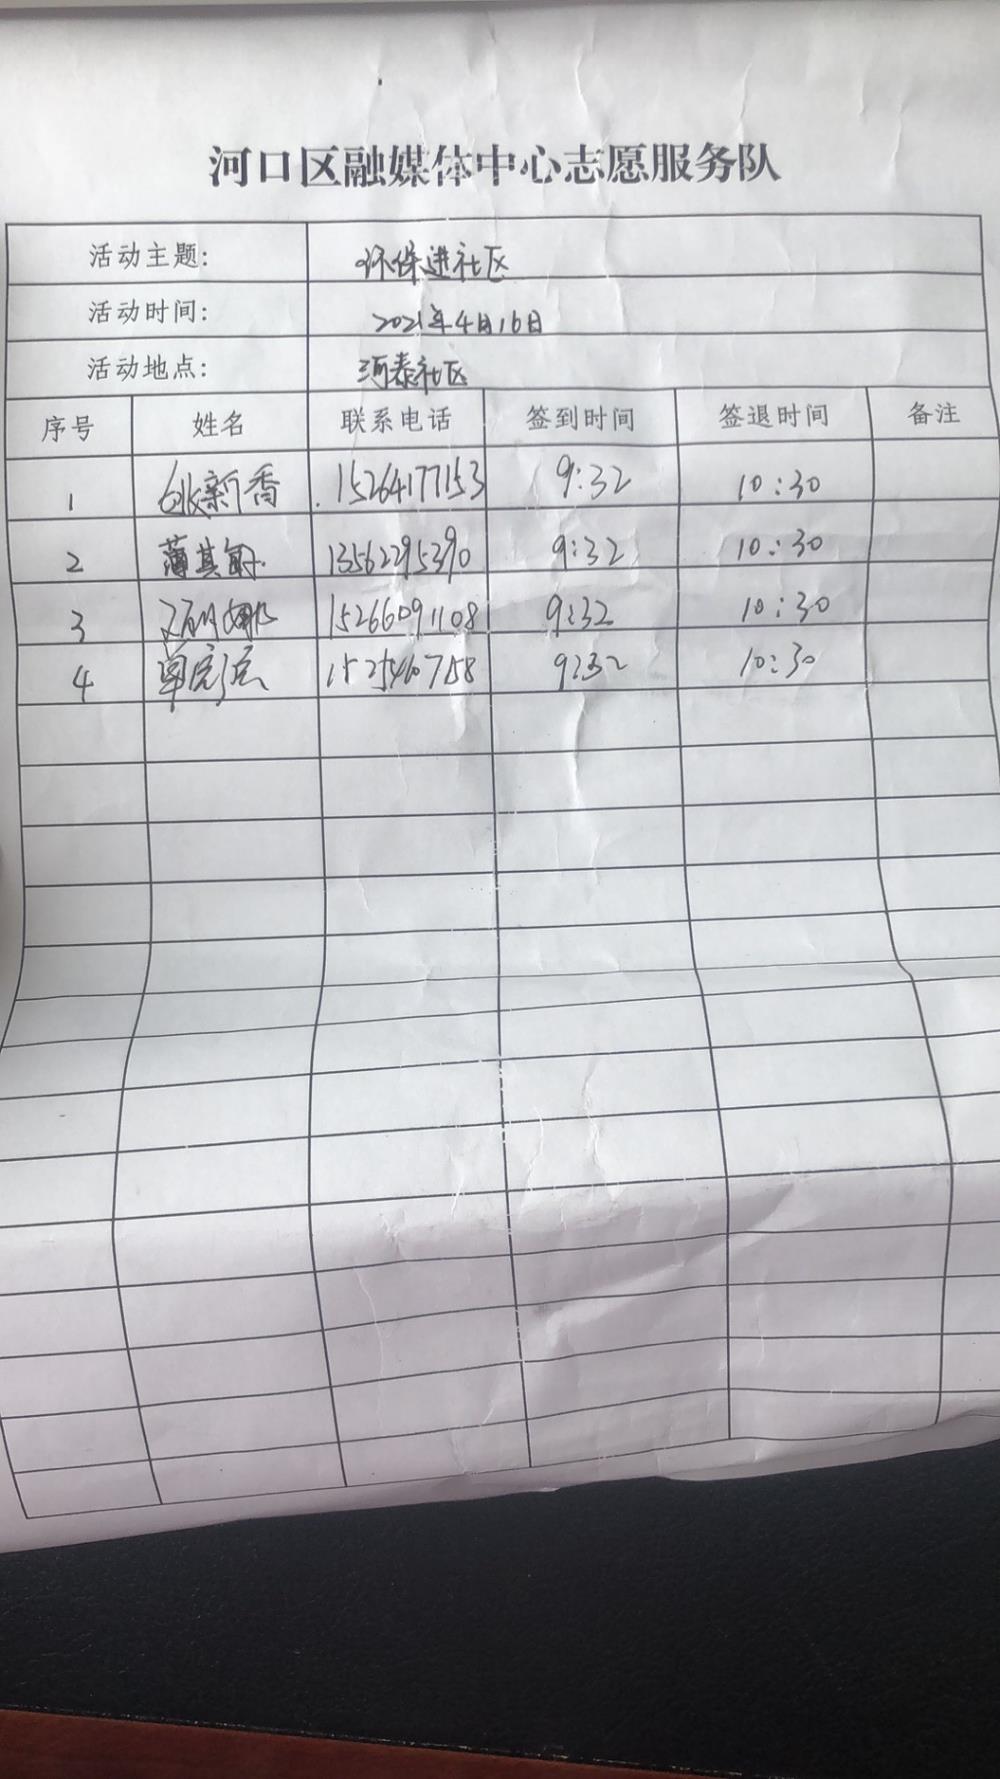 河口区融媒体中心志愿服务队
活动主题: 环保进社区
活动时间: 2021年4月16日
活动地点: 河泰社区
序号 姓名 联系电话 签到时间 签退时间 备注
1 新香 15264177153 9:32 10:30
2 薄其 13562295390 9:32 10:30
3 娜 15266091108 9:32 10:30
4 单 9:32 10:30